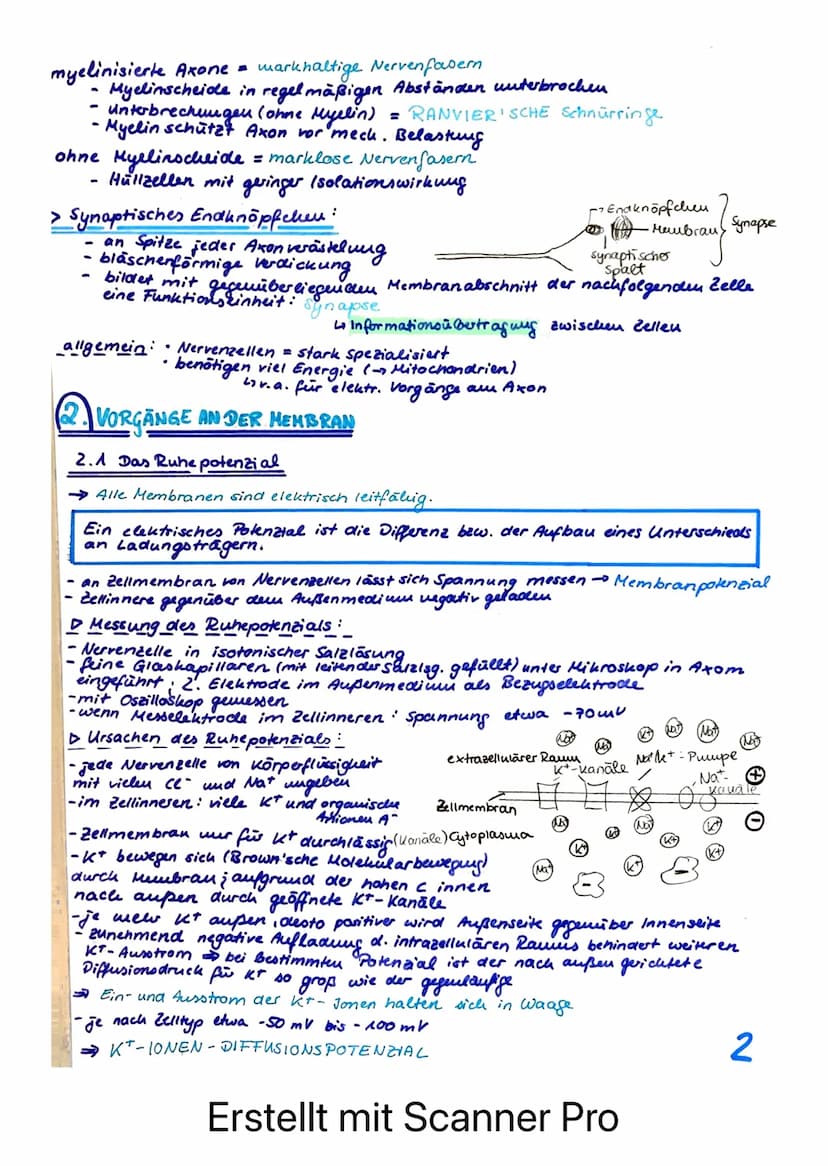 myelinisierte Axone = markhaltige Nervenfasern
- Myelinscheide in regelmäßigen Abständen unterbrochen
- Unterbrechungen (ohne Myelin) = RANVIER'SCHE Schnürringe
- Myelin schützt Axon vor mech. Belastung
ohne Myelinscheide = marklose Nervenfasern
- Hüllzellen mit geringer Isolationswirkung
> Synaptisches Endknöpfchen:
- an Spitze jeder Axonverästelung
- bläschenförmige Verdickung
- bildet mit gegenüberliegenden Membranabschnitt der nachfolgenden Zelle
eine Funktionseinheit: Synapse
↳ Informationsübertragung zwischen Zellen
→ Endknöpfchen
Membran
Synapse
synaptischer
Spalt
allgemein: • Nervenzellen = stark spezialisiert
• benötigen viel Energie (→ Mitochondrien)
↳ v.a. für elektr. Vorgänge am Axon
2. VORGÄNGE AN DER MEMBRAN
2.1 Das Ruhepotenzial
→ Alle Membranen sind elektrisch leitfähig.
Ein elektrisches Potenzial ist die Differenz bzw. der Aufbau eines Unterschieds
an Ladungsträgern.
- an Zellmembran von Nervenzellen lässt sich Spannung messen → Membranpotenzial
- Zellinnere gegenüber dem Außenmedium negativ geladen
▷ Messung des Ruhepotenzials:
- Nervenzelle in isotonischer Salzlösung
- feine Glaskapillaren (mit leitender Salzlsg. gefüllt) unter Mikroskop in Axom
eingeführt, 2. Elektrode im Außenmedium als Bezugselektrode
- mit Oszilloskop gemessen
- wenn Messelektrode im Zellinneren: Spannung etwa -70mV
▷ Ursachen des Ruhepotenzials:
- jede Nervenzelle von Körperflüssigkeit
mit vielen Cl⁻ und Na⁺ umgeben
- im Zellinneren: viele K⁺ und organische
Anionen A⁻
- Zellmembran nur für K⁺ durchlässig (Kanäle)
- K⁺ bewegen sich (Brown'sche Molekularbewegung)
durch Membran; aufgrund der hohen c innen
nach außen durch geöffnete K⁺-Kanäle
Na⁺ Na⁺ K⁺ Na⁺ Na⁺ Na⁺
extrazellulärer Raum
Na⁺/K⁺-Pumpe
K⁺-Kanäle
Na⁺-
Kanäle
+
Zellmembran
−
Cytoplasma
Na⁺ K⁺ K⁺ Na⁺ K⁺ K⁺ K⁺
Na⁺ − K⁺ −
- je mehr K⁺ außen, desto positiver wird Außenseite gegenüber Innenseite
- zunehmend negative Aufladung d. intrazellulären Raums behindert weiteren
K⁺-Ausstrom ⇒ bei bestimmten Potenzial ist der nach außen gerichtete
Diffusionsdruck für K⁺ so groß wie der gegenläufige
⇒ Ein- und Ausstrom der K⁺-Ionen halten sich in Waage
- je nach Zelltyp etwa -50 mV bis -100 mV
⇒ K⁺-IONEN-DIFFUSIONSPOTENZIAL
2
Erstellt mit Scanner Pro